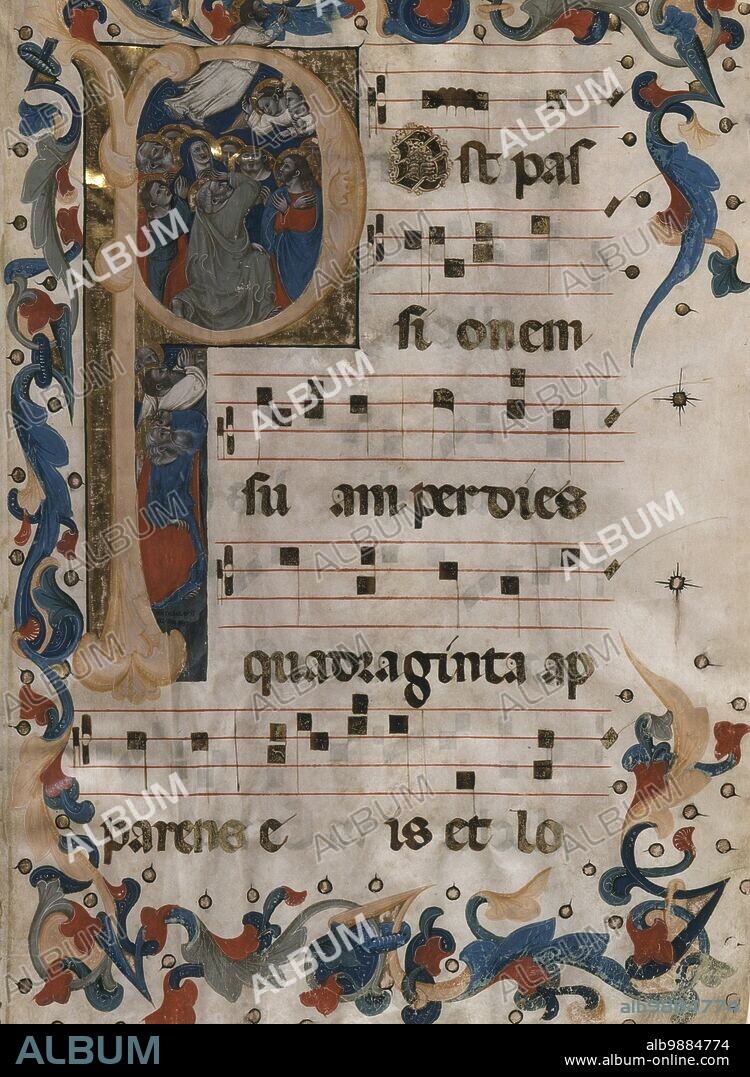 Ost pas
si onem
su am per dies
quadraginta ap
parens e is et lo
ALBUM
alb9884774
www.album-online.com